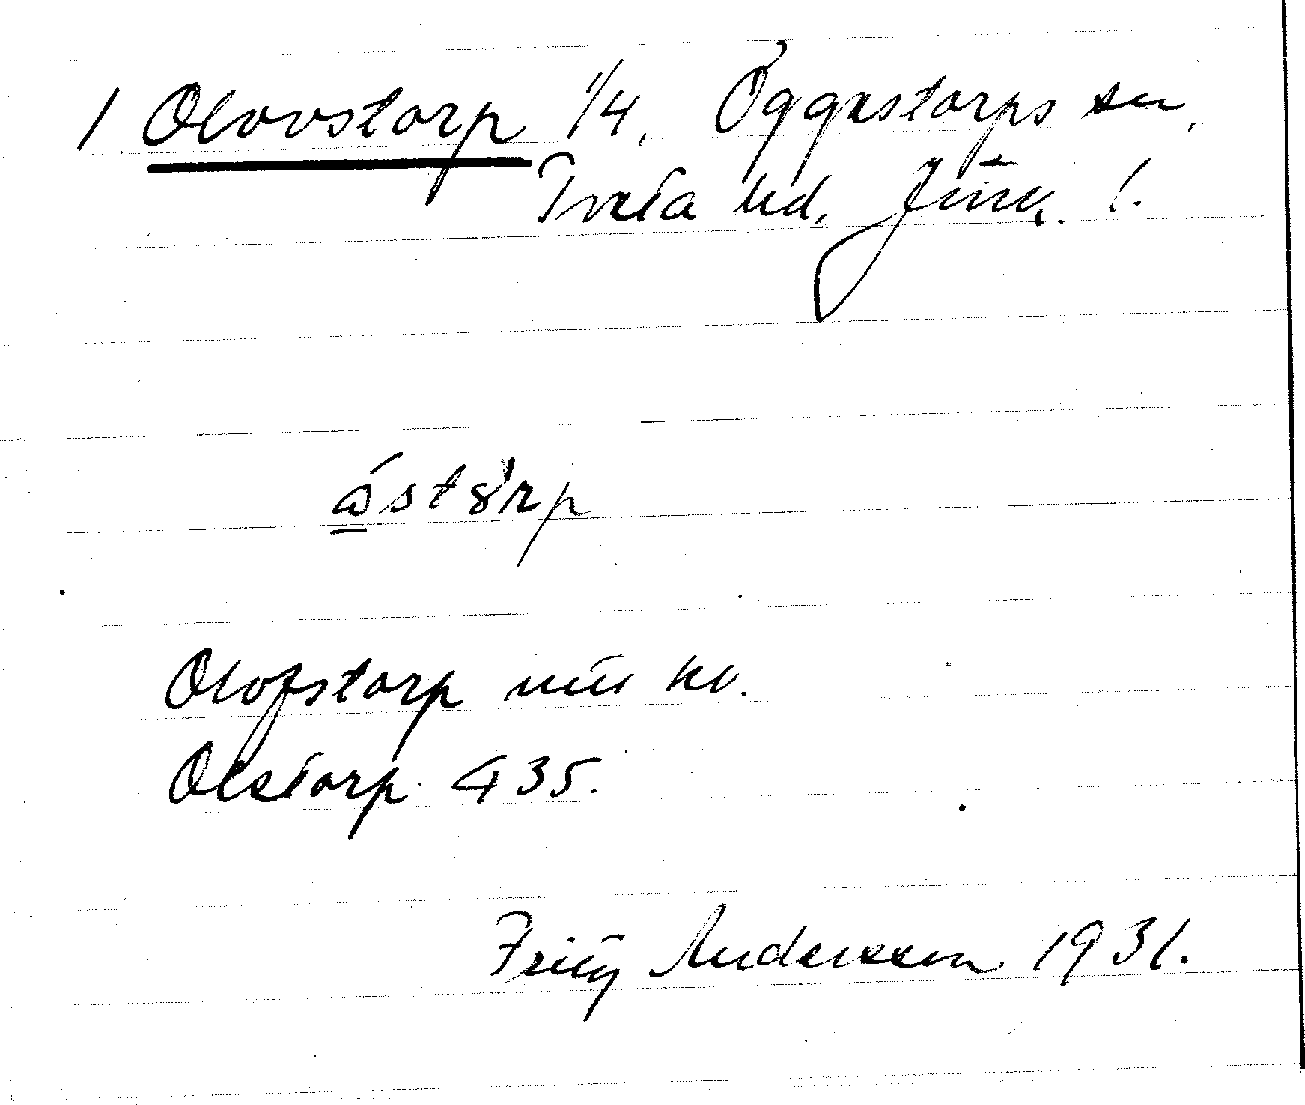 1 Olovstorp 1/4, Öggestorps sn,
Tveta hd, Jönk. l.
Olofstorp
Olstorp 435.
Fritz Andersson 1931.